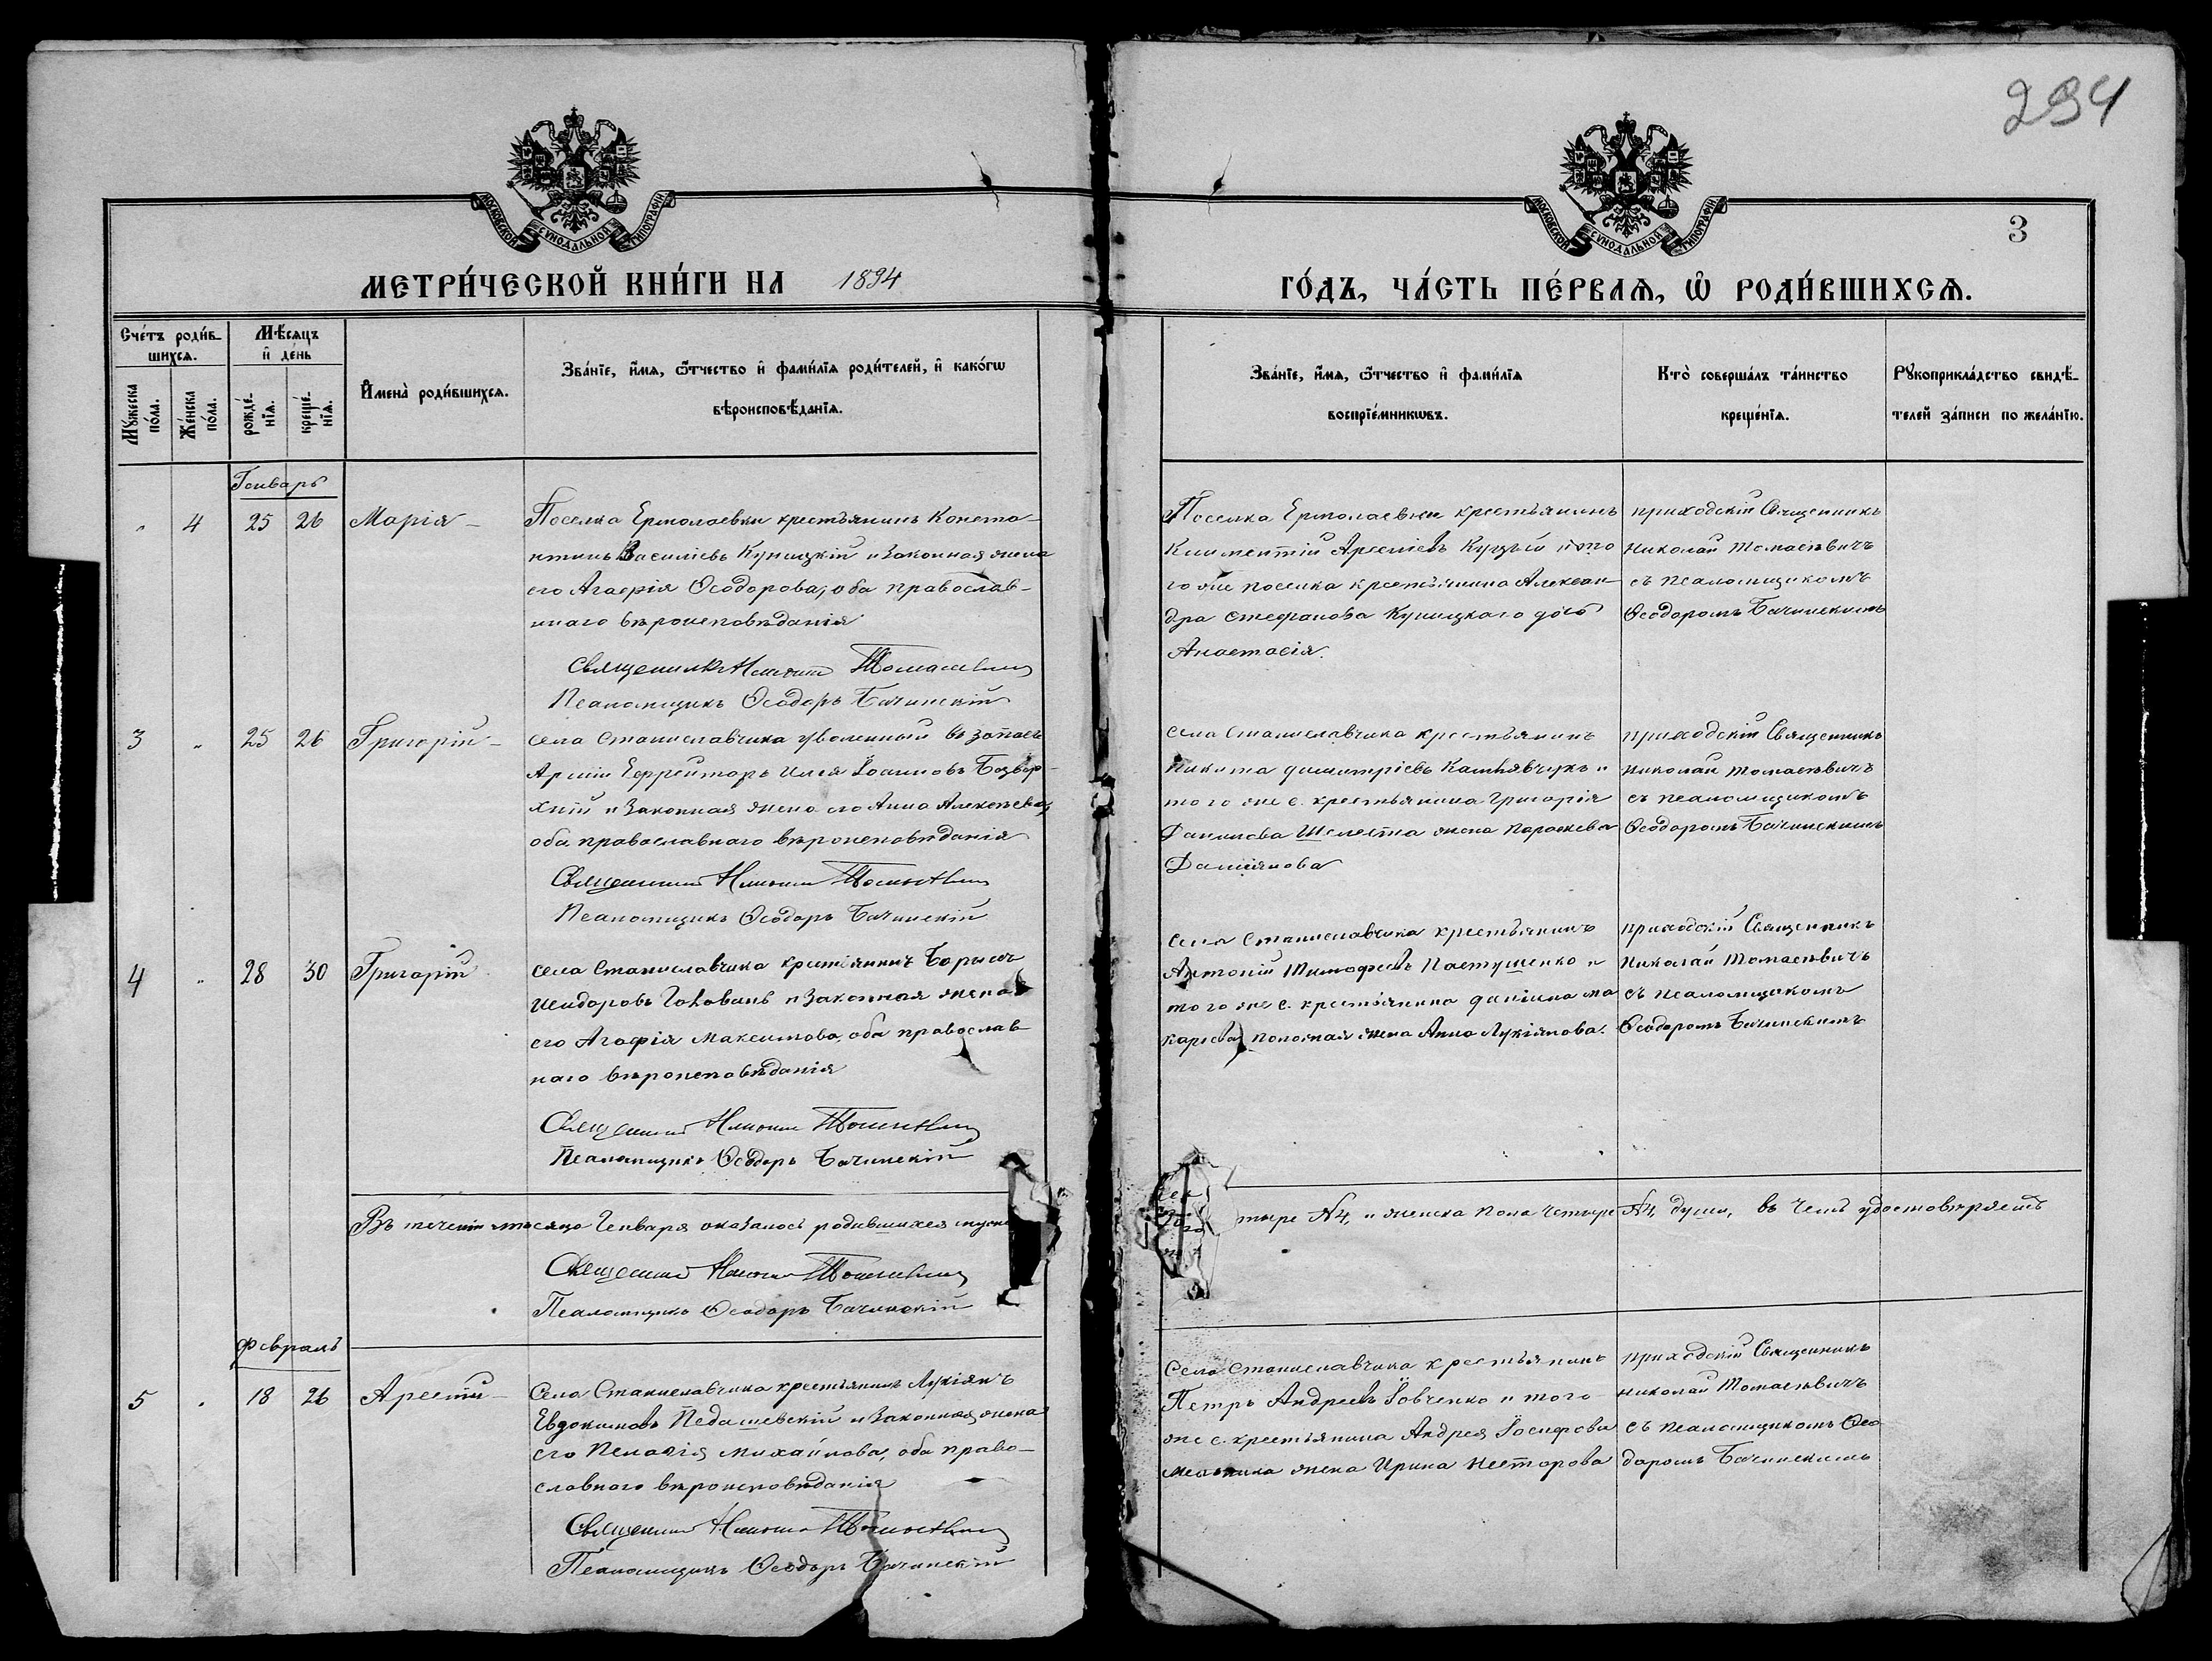 294
3
МОСКОВСКОЙ СѴНОДАЛЬНОЙ ТИПОГРАФІИ
МОСКОВСКОЙ СѴНОДАЛЬНОЙ ТИПОГРАФІИ
МЕТРИ́ЧЕСКОЙ КНИ́ГИ НА 1894
ГО́ДЪ, ЧА́СТЬ ПЕ́РВАѦ, Ѡ҆ РОДИ́ВШИХСѦ.
Сче́тъ роди́в-
шихсѧ.
Мѣ́сѧцъ
и҆ де́нь
Мꙋ́жеска
по́ла.
Же́нска
по́ла.
рожде́-
нїѧ.
креще́-
нїѧ.
И҆мена̀ роди́вшихсѧ.
Зва́нїе, и҆́мѧ, ѻ҆́тчество и҆ фами́лїѧ роди́телей, и҆ како́гѡ
вѣроисповѣ́данїѧ.
Зва́нїе, и҆́мѧ, ѻ҆́тчество и҆ фами́лїѧ
воспрїе́мникѡвъ.
Кто̀ соверша́лъ та́инство
креще́нїѧ.
Рꙋкоприкла́дство свидѣ́-
телей за́писи по жела́нїю.
Генварь
" 4 25 26 Марія
Поселка Ермолаевки крестьянинъ Конста-
нтинъ Василіевъ Куницкій и законная жена
его Агафія Ѳеодорова, оба православ-
наго вѣроисповѣданія
Священникъ Николай Томасевич
Псаломщикъ Ѳеодоръ Бачинскій
Поселка Ермолаевки крестьянинъ
Климентій Арсеніевъ и то
го же поселка крестьянина Алексан
дра Стефанова Куницкаго дочь
Анастасія.
приходскій Священникъ
Николай Томасѣвичъ
съ псаломщикомъ
Ѳеодоромъ Бачинскимъ
3 " 25 26 Григорій
села Станиславчика уволенный въ запасъ
Арміи Ефрейторъ Илія Іоанновъ Безвер-
хній и законная жена его Анна Алексѣева,
оба православнаго вѣроисповѣданія
Священникъ Николай Томасевич
Псаломщикъ Ѳеодоръ Бачинскій
села Станиславчика крестьянинъ
Никита Димитріевъ и
того же с. крестьянина Григорія
Данилова Шелеста жена Параскева
Даміянова
приходскій Священникъ
Николай Томасѣвичъ
съ псаломщикомъ
Ѳеодоромъ Бачинскимъ
4 " 28 30 Григорій
села Станиславчика крестіянинъ Борисъ
Исидоровъ Голованъ и законная жена
его Агафія Максимова, оба православ
наго вѣроисповѣданія
Священникъ Николай Томасевич
Псаломщикъ Ѳеодоръ Бачинскій
Села Станиславчика крестьянинъ
Антоній Тимофеевъ Пастушенко и
того же с. крестьянина Даніила Ма
каріева жена Анна Лукіянова.
приходскій Священникъ
Николай Томасѣвичъ
съ псаломщикомъ
Ѳеодоромъ Бачинскимъ
Въ теченіи мѣсяца Генваря оказалось родившихся муже
тыре №4, и женска пола четыре №4, души, въ чемъ удостовѣряемъ
Священникъ Николай Томасевич
Псаломщикъ Ѳеодоръ Бачинскій
Февраль
5 " 18 26
Села Станиславчика крестьянинъ Лукіянъ
Евдокимовъ Педашевскій и законная жена
его Пелагія Михайлова, оба право-
славного вѣроисповѣданія
Священникъ Николай Томасевич
Псаломщикъ Ѳеодоръ Бачинскій
Села Станиславчика крестьянинъ
Петръ Андреевъ Іовченко и того
же с. крестьянина Андрея Іосифова
Мельника жена Ирина Несторова
приходскій Священникъ
Николай Томасѣвичъ
съ псаломщикомъ Ѳео
доромъ Бачинскимъ